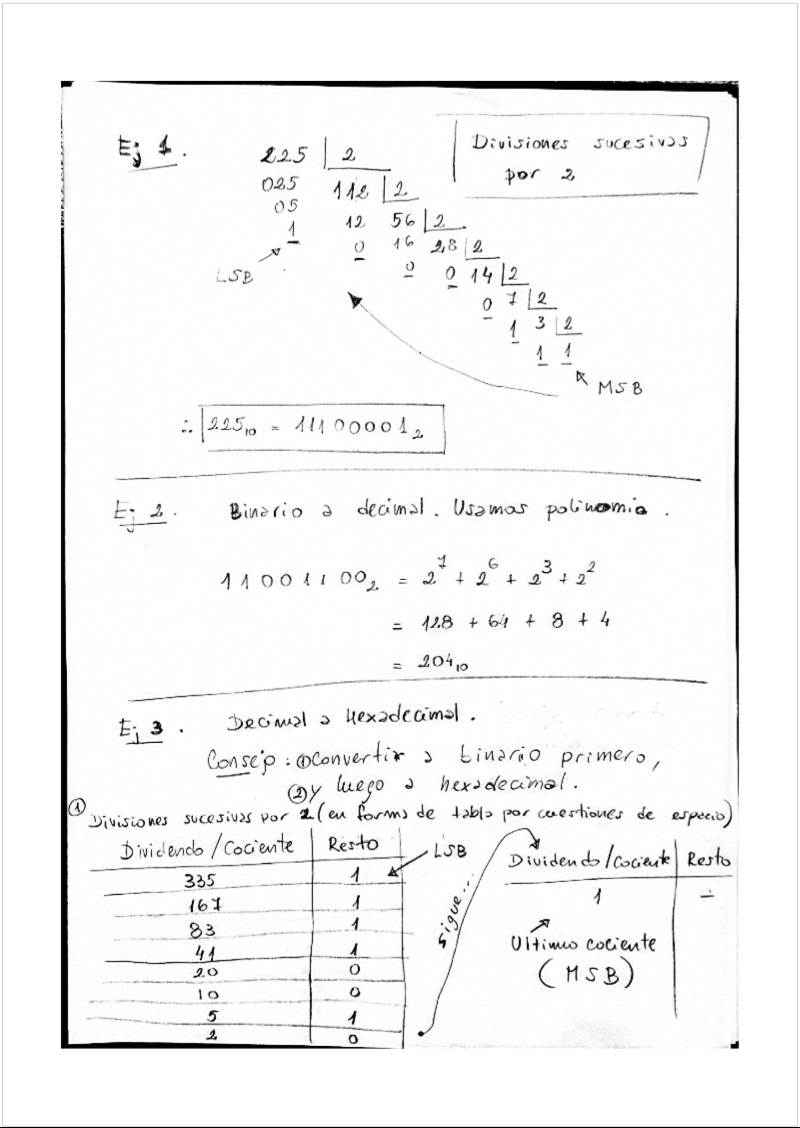 Ej 1.
Divisiones sucesivas
por 2
225 | 2
025 112 | 2
05 12 56 | 2
1 0 16 28 | 2
LSB
0 0 14 | 2
0 7 | 2
1 3 | 2
1 1
MSB
∴ 225₁₀ = 11100001₂
Ej 2. Binario a decimal. Usamos polinomio.
11001100₂ = 2⁷ + 2⁶ + 2³ + 2²
= 128 + 64 + 8 + 4
= 204₁₀
Ej 3. Decimal a Hexadecimal.
Consejo: ① convertir a binario primero,
② y luego a hexadecimal.
① Divisiones sucesivas por 2 (en forma de tabla por cuestiones de espacio)
Dividendo / Cociente Resto
335 1
LSB
167 1
83 1
41 1
20 0
10 0
5 1
2 0
Sigue...
Dividendo / Cociente Resto
1 –
Ultimo cociente
(MSB)